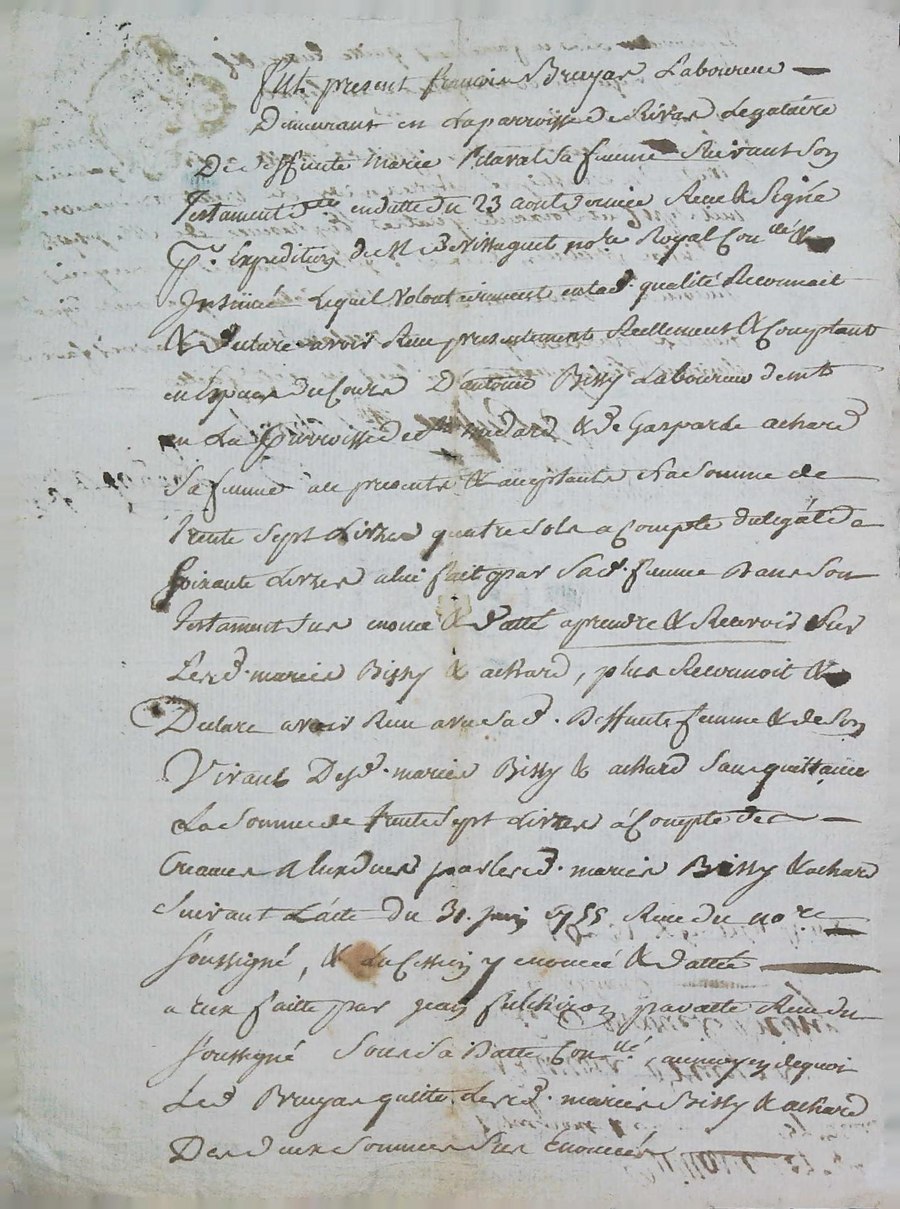 fut present francois Bruyas Laboureur
Demeurant en la parroisse de Rivas Legataire
De deffunte marie Claval sa femme suivant son
Testament en datte du 23 aout dernier Receu & signé
Expedition de Me notre Royal Con.lé &
Insinué Lequel volontairement en lad. qualité Reconnoit
& Declare avoir Receu presentement Reellement & Comptant
en Espaces du Cours D'antoine Bissy Laboureur demt
en La parroisse de st medard & de Gasparde achard
sa femme ice presents & aceptants La somme de
trente sept Livres quatre sols a Compte du legát de
soixante Livres a lui fait par sad. femme Dans son
Testament sus enoncé & datté a prendre & Recevoir sur
Lesd. mariés Bissy & achard, plus Reconnoit &
Declare avoir Receu avec sad. Deffunte femme & de son
Vivant Desd. mariés Bissy & achard sans quittance
La somme de trente sept Livres à Compte des
Creances a lui dues par lesd. mariés Bissy & achard
suivant L'acte du 31. 1755 Receu du nore
soussigné, & La Cession y enoncée & dattée
a eux faitte par jean fulchiron Receu du
soussigné sous sa Datte Con.llé, au moyen de quoi
Led. Bruyas quitte Lesd. mariés Bissy & achard
Des deux sommes sus Enoncées